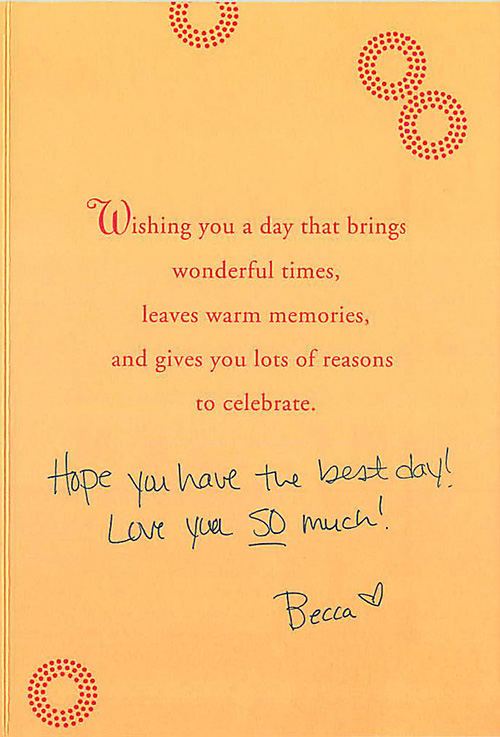 Wishing you a day that brings
wonderful times,
leaves warm memories,
and gives you lots of reasons
to celebrate.
Hope you have the best day!
Love you SO much!
Becca